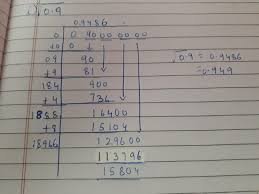 √0.9
0.9486
0 0.90 00 00 00
+0 0
09 90
+9 81
184 900
+4 736
1888 16400
+8 15104
18966 129600
113796
15804
√0.9 = 0.9486
=0.949